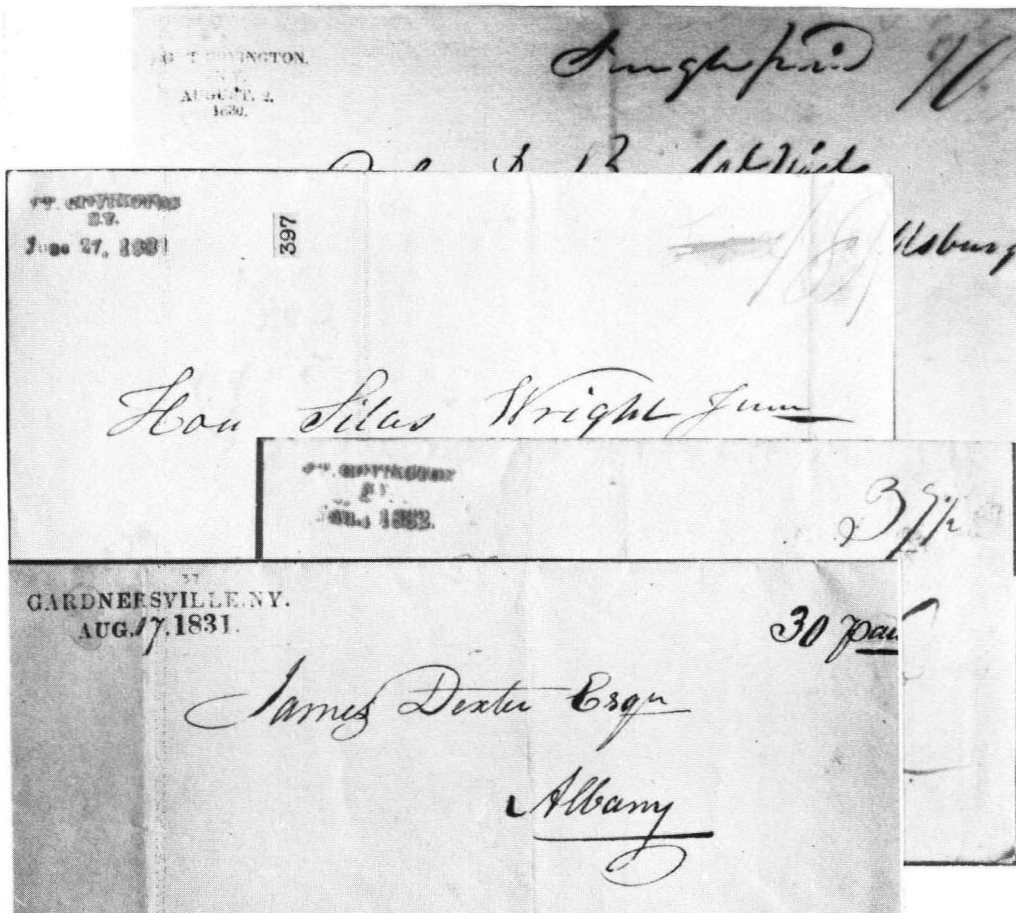 COVINGTON,
AUGUST. 2.
1830.
Single paid
FT. COVINGTON
N.Y.
June 27, 1831
397
Hon Silas Wright Junr
FT. COVINGTON
N.Y.
37½
GARDNERSVILLE.NY.
AUG.17.1831.
30 Paid
James Dexter Esqr
Albany